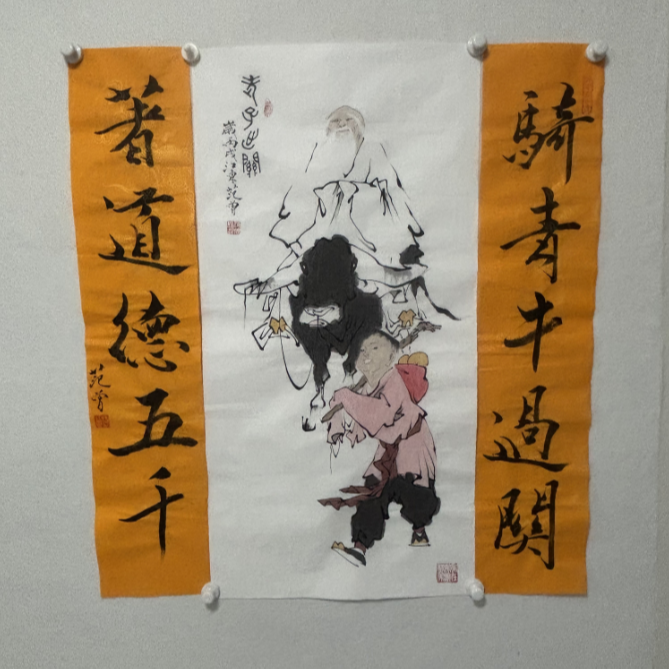 騎青牛過関
老子出關
歲丙戌江東范曾
著道德五千
范曾